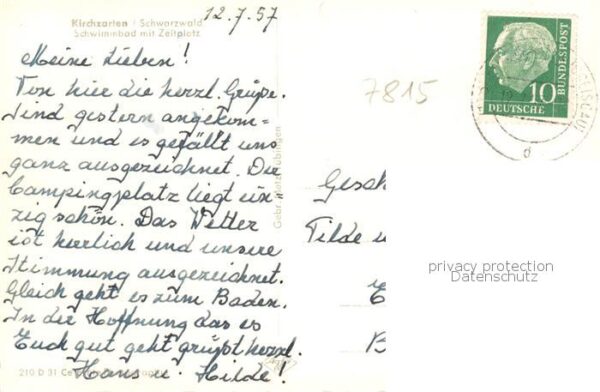 Kirchzarten / Schwarzwald
Schwimmbad mit Zeltplatz
12.7.57
Meine Lieben!
Von hier die herzl. Grüße.
Sind gestern angekom-
men und es gefällt uns
ganz ausgezeichnet. Die
Campingplatz liegt ein
zig schön. Das Wetter
ist herrlich und unsere
Stimmung ausgezeichnet.
Gleich geht es zum Baden.
In der Hoffnung das es
Euch gut geht grüßt herzl.
Hans u. Hilde!
210 D 31
Gebr. Metz Tübingen
7815
10
BUNDESPOST
DEUTSCHE
d
Gesch
Tilde u
E
B
privacy protection
Datenschutz